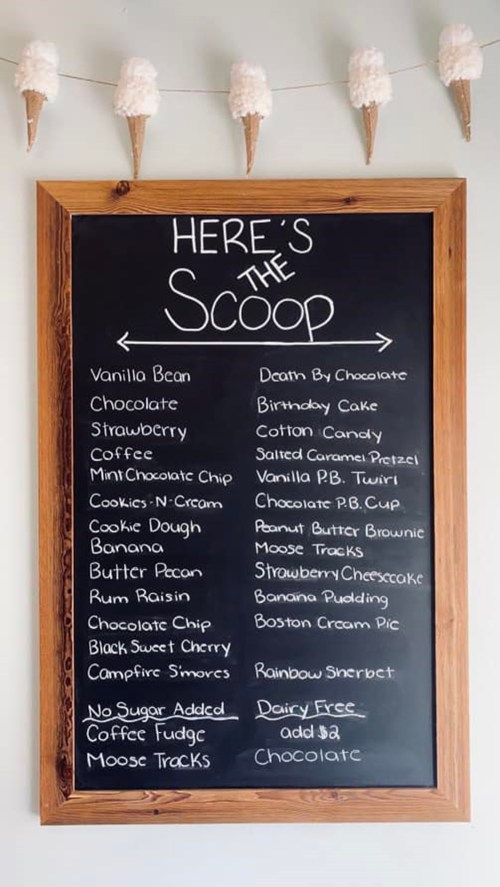 HERE'S
THE
SCOOP
Vanilla Bean
Chocolate
Strawberry
Coffee
Mint Chocolate Chip
Cookies-N-Cream
Cookie Dough
Banana
Butter Pecan
Rum Raisin
Chocolate Chip
Black Sweet Cherry
Campfire S'mores
No Sugar Added
Coffee Fudge
Moose Tracks
Death By Chocolate
Birthday Cake
Cotton Candy
Salted Caramel Pretzel
Vanilla P.B. Twirl
Chocolate P.B. Cup
Peanut Butter Brownie
Moose Tracks
Strawberry Cheesecake
Banana Pudding
Boston Cream Pie
Rainbow Sherbet
Dairy Free
add $2
Chocolate